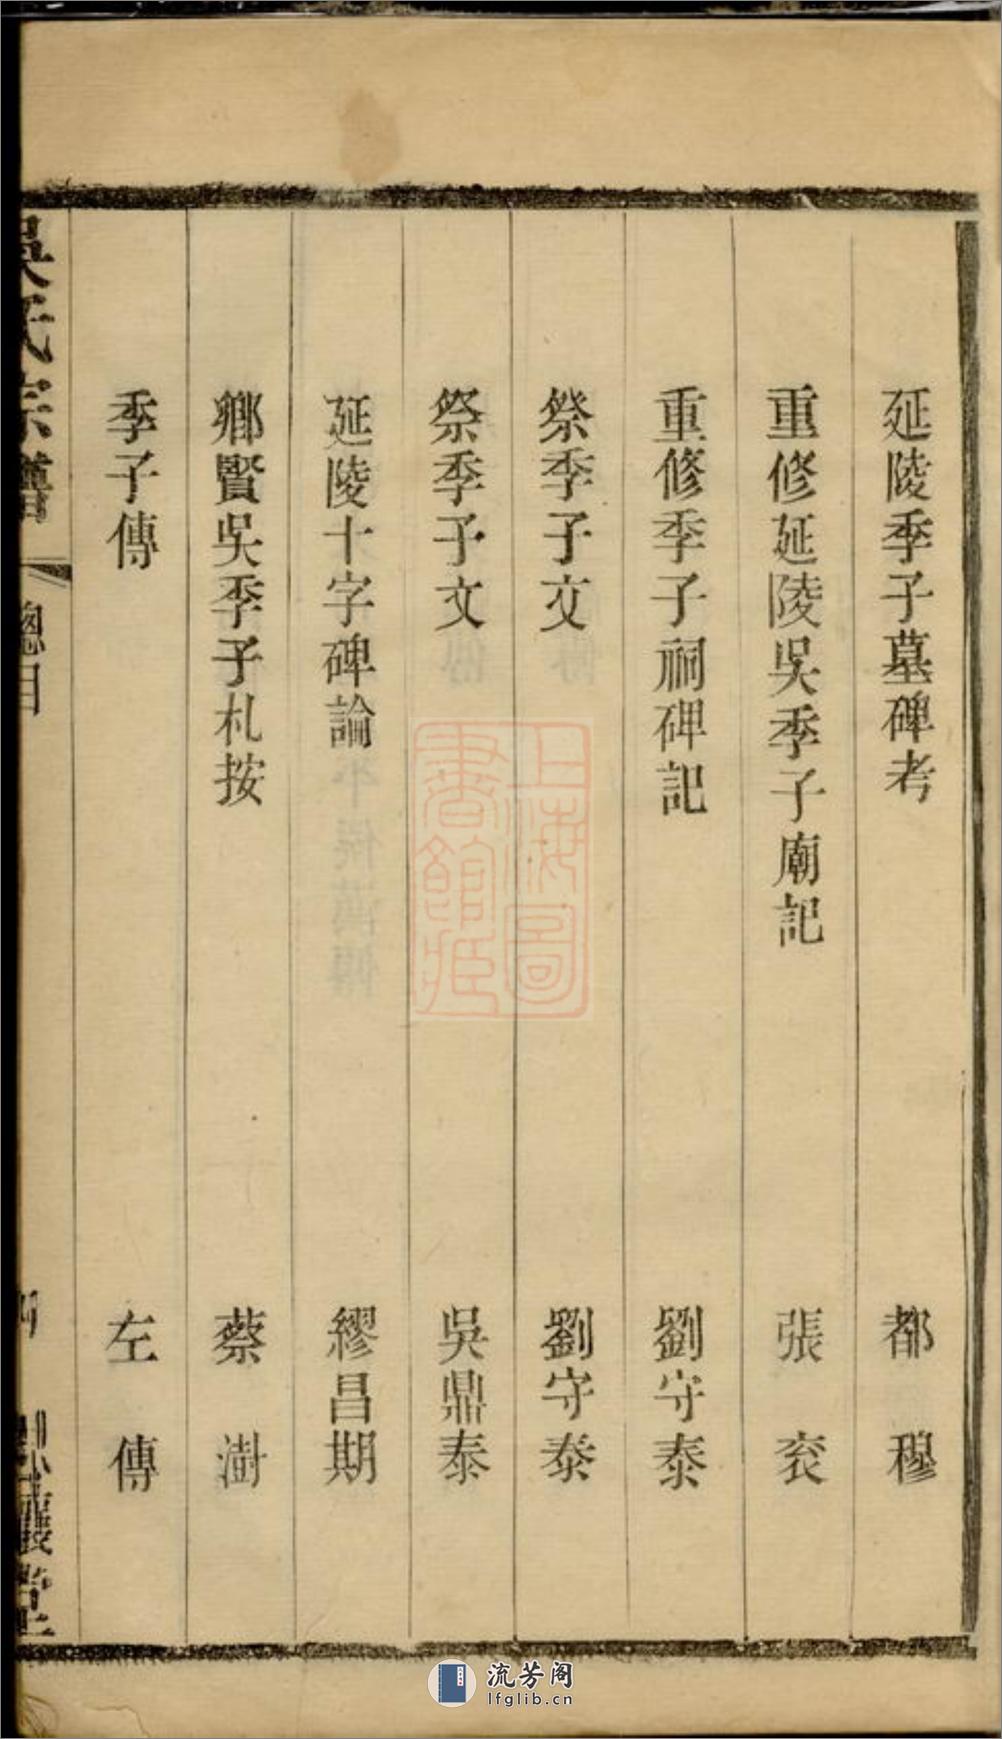 延陵季子墓碑考 都穆
重修延陵吳季子廟記 張袞
重修季子祠碑記 劉守泰
祭季子文 劉守泰
祭季子文 吳鼎泰
延陵十字碑論 繆昌期
鄉賢吳季子札按 蔡澍
季子傳 左傳
吳氏宗譜 總目
上海圖書館藏
流芳阁
lfglib.cn